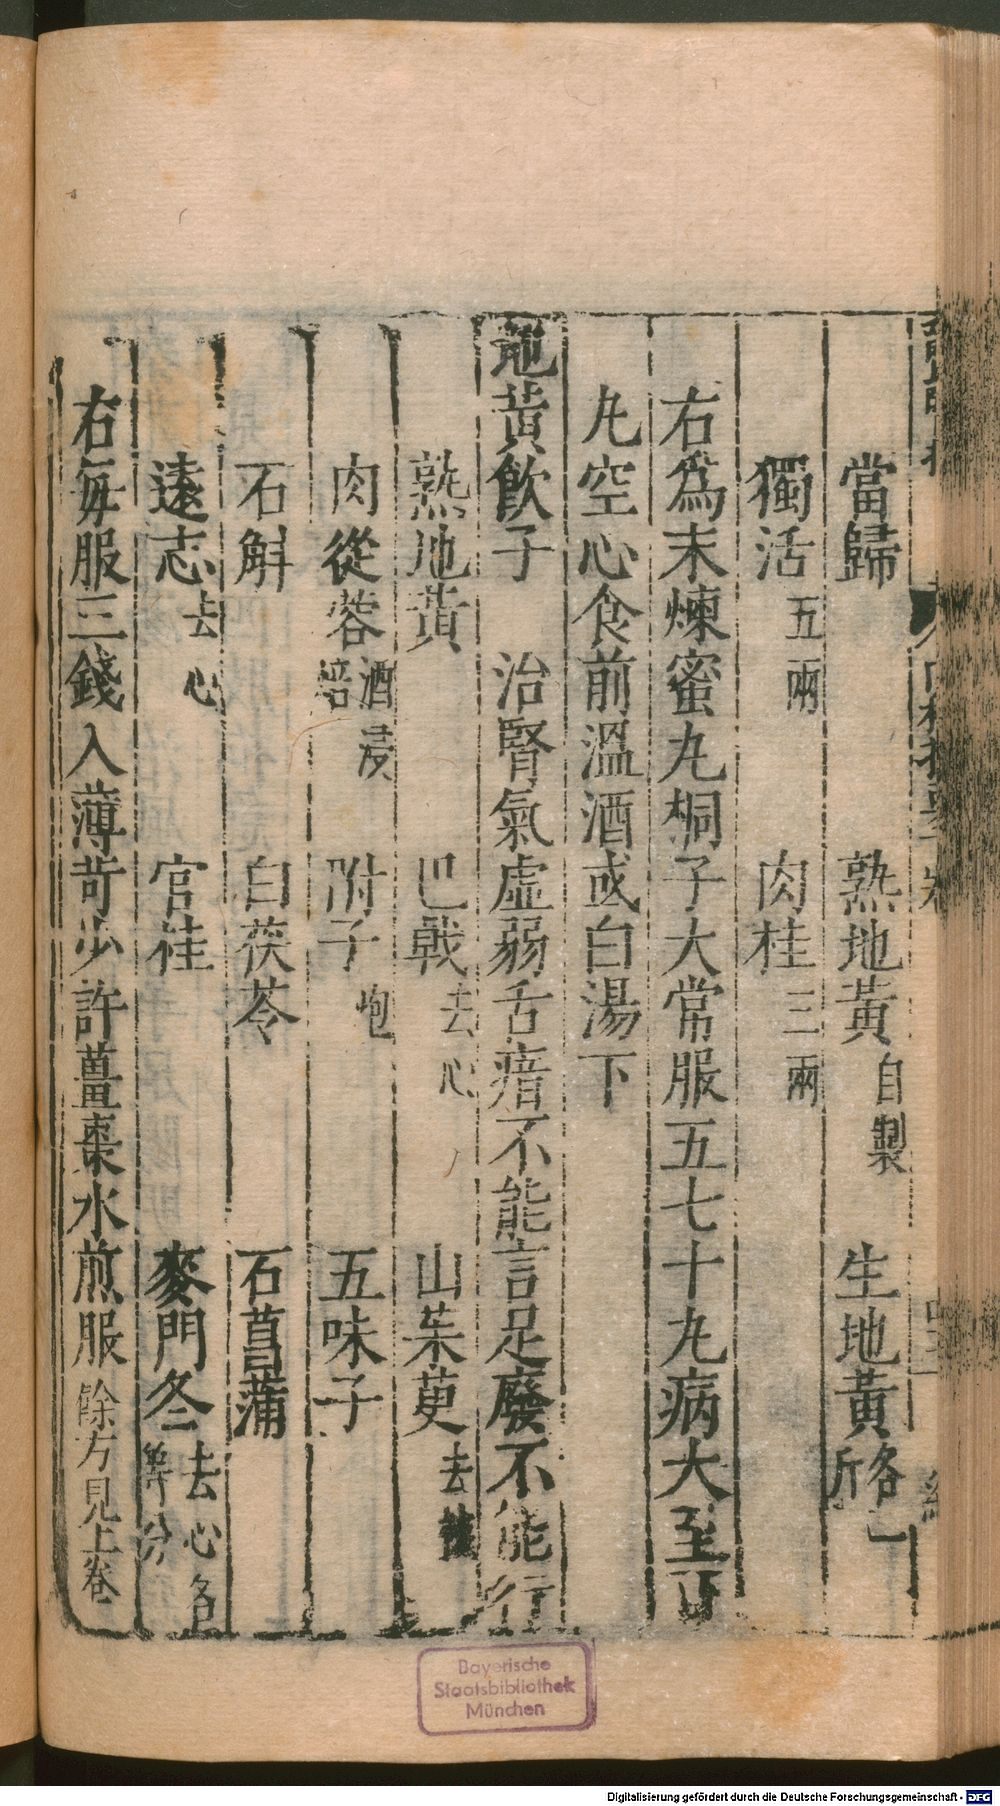 當歸 熟地黃自製 生地黃各一斤
獨活五兩 肉桂三兩
右爲末煉蜜丸桐子大常服五七十丸病大至百
丸空心食前溫酒或白湯下
地黃飲子 治腎氣虛弱舌瘖不能言足廢不能行
熟地黃 巴戟去心 山茱萸去核
肉從蓉酒浸焙 附子炮 五味子
石斛 白茯苓 石菖蒲
遠志去心 官桂 麥門冬去心各等分
右每服三錢入薄苛少許薑棗水煎服餘方見上卷
Bayerische
Staatsbibliothek
München
Digitalisierung gefördert durch die Deutsche Forschungsgemeinschaft - DFG